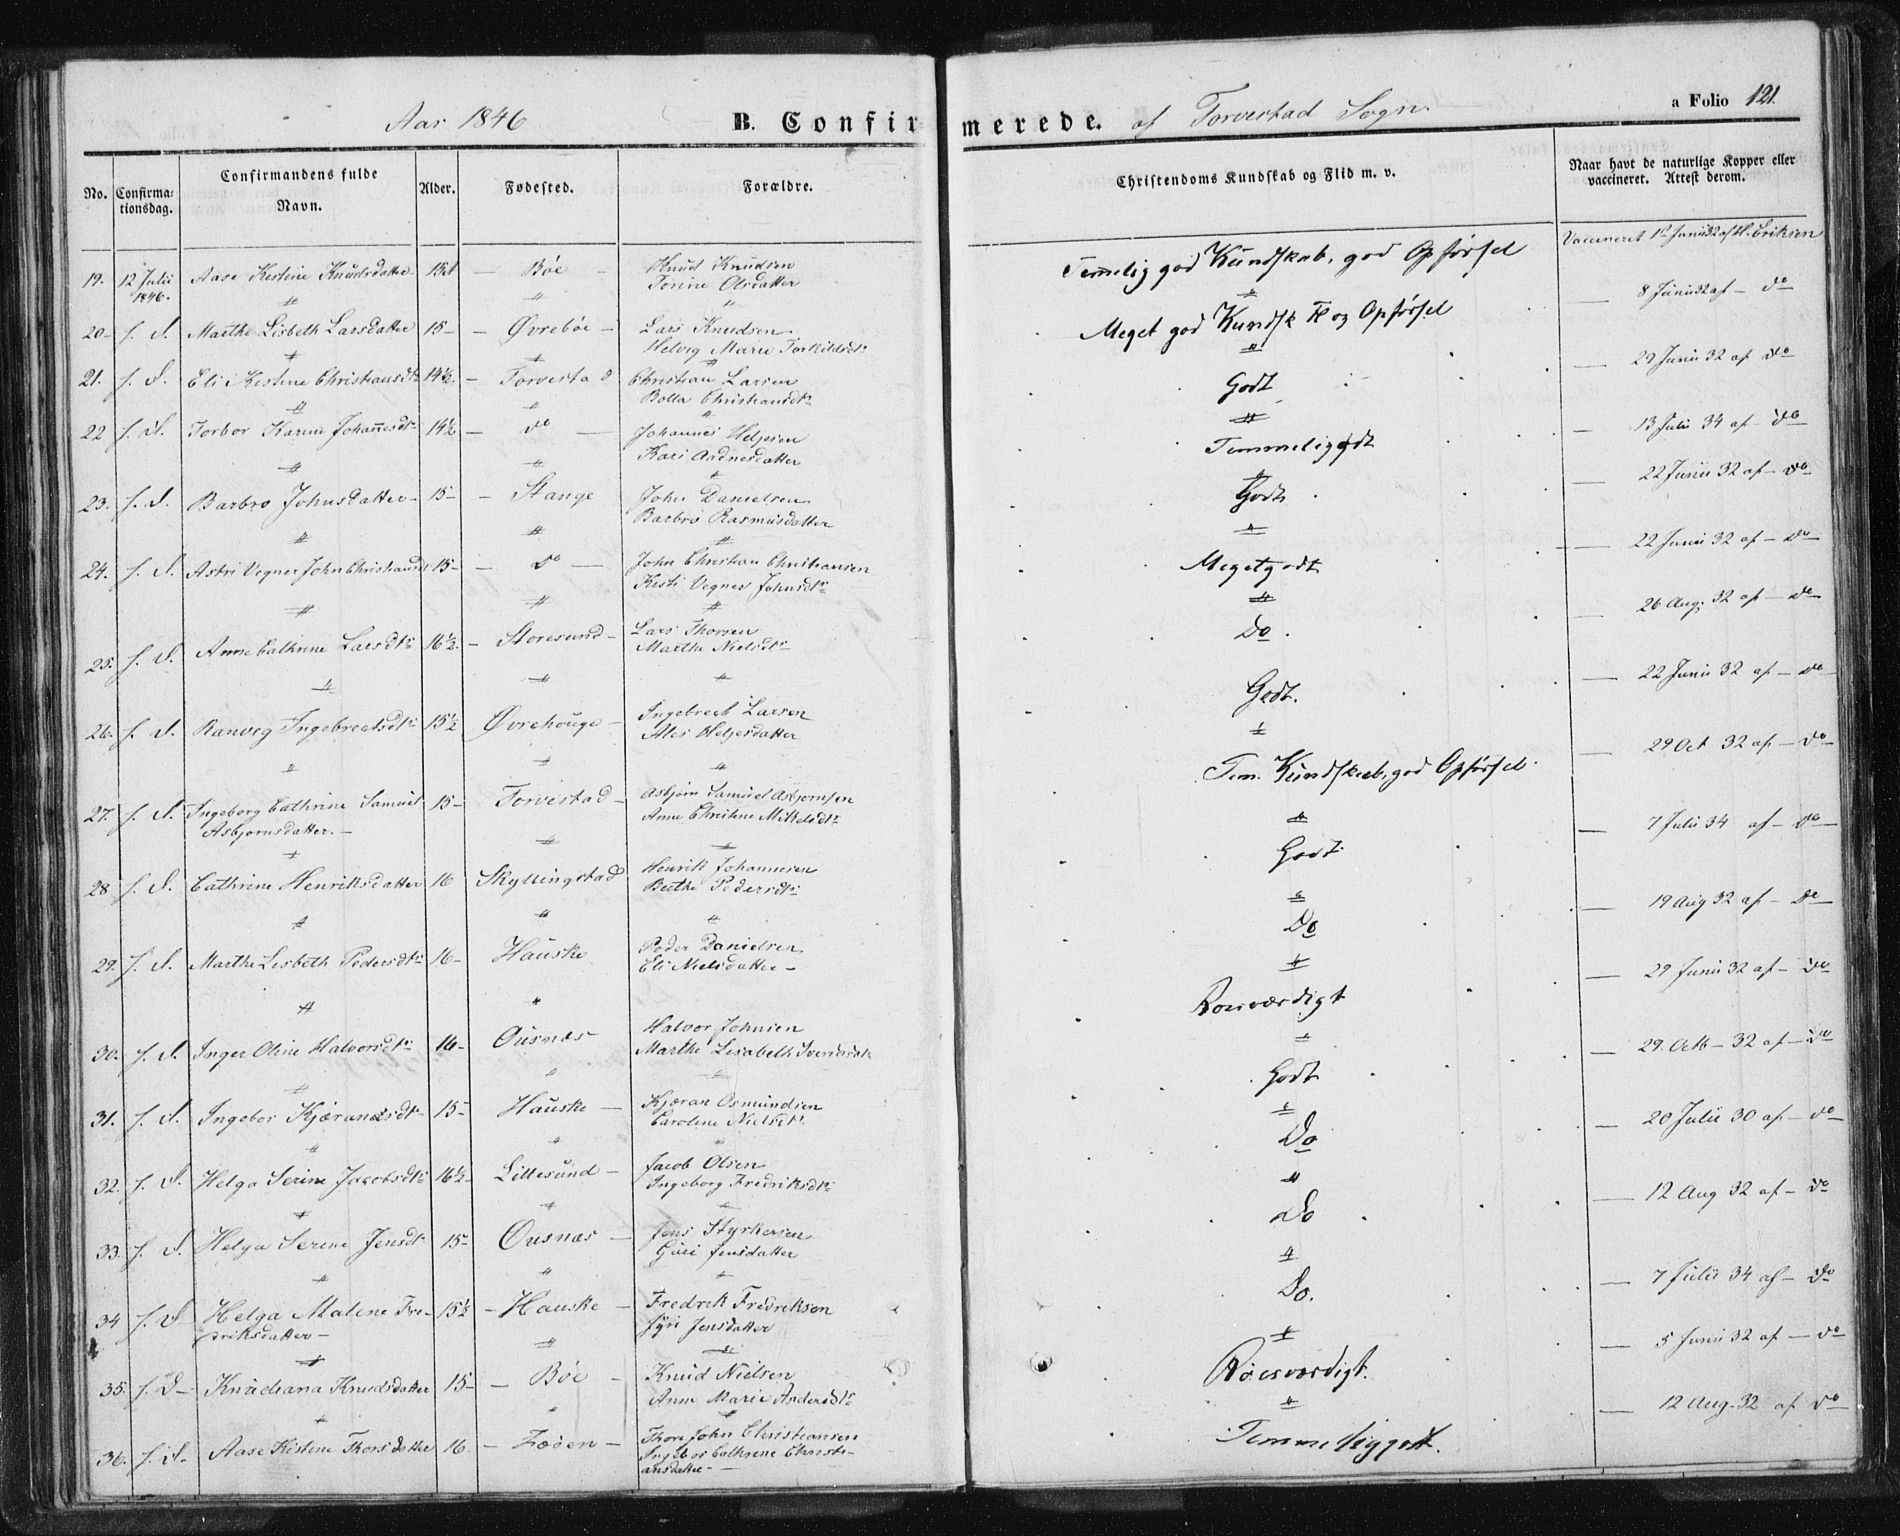 Aar 1846 B. Confirmerede. af Torvestad Sogn. a Folio 121.
No. Confirmationsdag. Confirmandens fulde Navn. Alder. Fødested. Forældre. Christendoms Kundskab og Flid m. v. Naar havt de naturlige Kopper eller vaccineret. Attest derom.
19. 12 Julii 1846. Aase Kistine Knudsdatter Bøe Knud Knudsen Temmelig god Kundskab, god Opførsel Vaccineret 12 Junii 32 af H. Eriksen
Torine Olsdatter
20 f. d. Marthe Lisbeth Larsdatter 15 Øvrebøe Lars Knudsen Meget god Kundsk og Opførsel 8 Junii 32 af do
Helvig Marie Torkildsdtr
21. f. d. Eli Kistine Christiansdtr 14½ Torvestad Christian Larsen Godt 29 Junii 32 af do
Bolla Christiansdtr
22 f. d. Torbor Karine Johannesdtr 14½ do Johannes Heljesen Temmeliggodt 13 Julii 34 af do
Kari Aadnesdatter
23. f. d. Barbro Johnsdatter 15 Stange John Danielsen Godt 22 Junii 32 af do
Barbro Rasmusdatter
24. f. d. Astri Vegner John Christiansd 15 do John Christian Christiansen Megetgodt 22 Junii 32 af do
Kisti Vegner Johnsdtr
25. f. d. Anne Cathrine Larsdtr 16½ Storesund Lars Thorsen Do 26 Aug. 32 af do
Marthe Nielsdtr
26. f. d. Ranveg Ingebretsdtr 15½ Øvrehouge Ingebret Larsen Godt. 22 Junii 32 af do
Ales Heljesdatter
27. f. d. Ingeborg Cathrine Samuel 15 Torvestad Asbjørn Samuel Asbjørnsen Tem. Kundskab, god Opførsel 29 Oct 32 af do
Asbjørnsdatter. Anne Christine Mikelsdtr
28 f. d. Cathrine Henriksdatter 16 Skyllingstad Henrik Johannesen Godt 7 Julii 34 af do
Berthe Pedersdtr
29. f. d. Marthe Lisbeth Pedersdtr 16 Hauske Peder Danielsen Do 19 Aug 32 af do
Eli Nielsdatter
30. f. d. Inger Oline Halvorsdtr 16 Ousnæs Halvor Johnsen Roesværdigt 29 Junii 32 af do
Marthe Lisabeth Svendsdtr
31. f. d. Ingebor Kjæransdtr 15 Hauske Kjæran Osmundsen Godt 29. Octb 32 af do
Caroline Nielsdtr
32. f. d. Helga Serine Jacobsdtr 16½ Lillesund Jacob Olsen Do 20 Julii 30 af do
Ingeborg Fredriksdtr
33. f. d. Helga Serine Jensdtr 15 Ousnæs Jens Styrkersen Do 12 Aug 32 af do
Guri Jensdatter
34 f. d. Helga Malene Fre- 15½ Hauske Fredrik Fredriksen Do. 7 Julii 34 af do
driksdatter Siri Jensdatter
35. f. d. Knudiana Knudsdatter 15 Bøe Knud Nielsen Roesværdigt. 5 Junii 32 af do
Anne Marie Andersdtr
36. f. d. Aase Kistine Thorsdatter 16. Thore John Christiansen Temmeliggodt. 12 Aug. 32 af do
Ingebor Cathrine Christi-
ansdatter